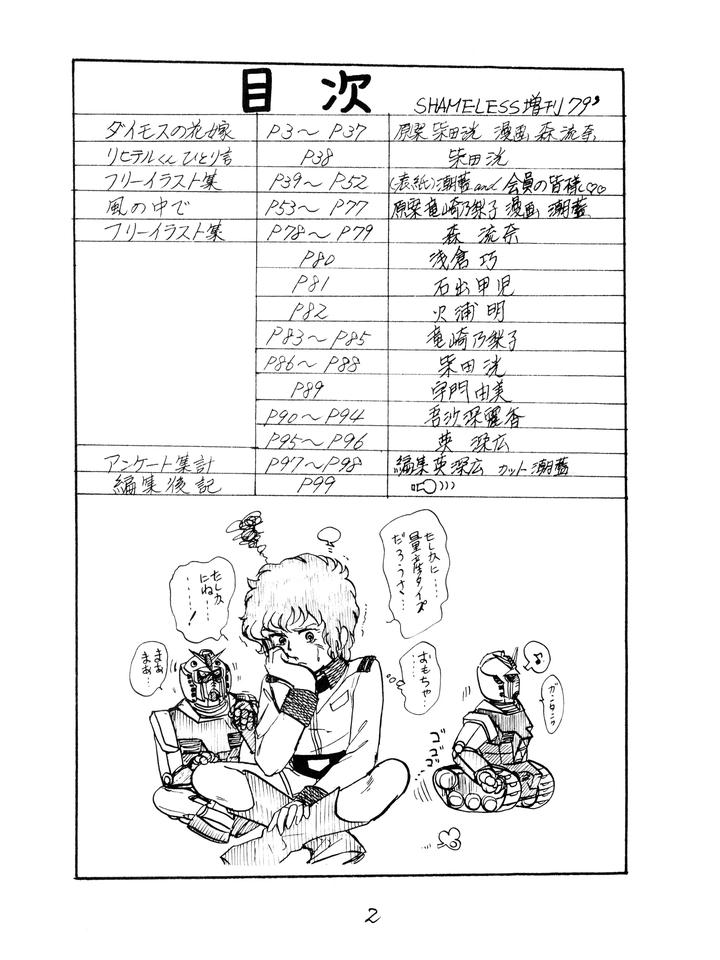 目次
SHAMELESS増刊79'
ダイモスの花嫁 P3～P37 原案 柴田洸 漫画 森流奈
リヒテルくんひとり言 P38 柴田洸
フリーイラスト集 P39～P52 (表紙)潮藍and会員の皆様♡♡
風の中で P53～P77 原案竜崎乃梨子 漫画 潮藍
フリーイラスト集 P78～P79 森流奈
P80 浅倉巧
P81 石出甲児
P82 火浦明
P83～P85 竜崎乃梨子
P86～P88 柴田洸
P89 宇門由美
P90～P94 吾沙深麗香
P95～P96 英深広
アンケート集計 P97～P98 編集英深広 カット潮藍
編集後記 P99
たしかに……
量産タイプ
だろうさ…
たしか
にね…
……！
まあ
まあ…
おもちゃ…
……
♪
ガンタンク
ゴゴゴ
2